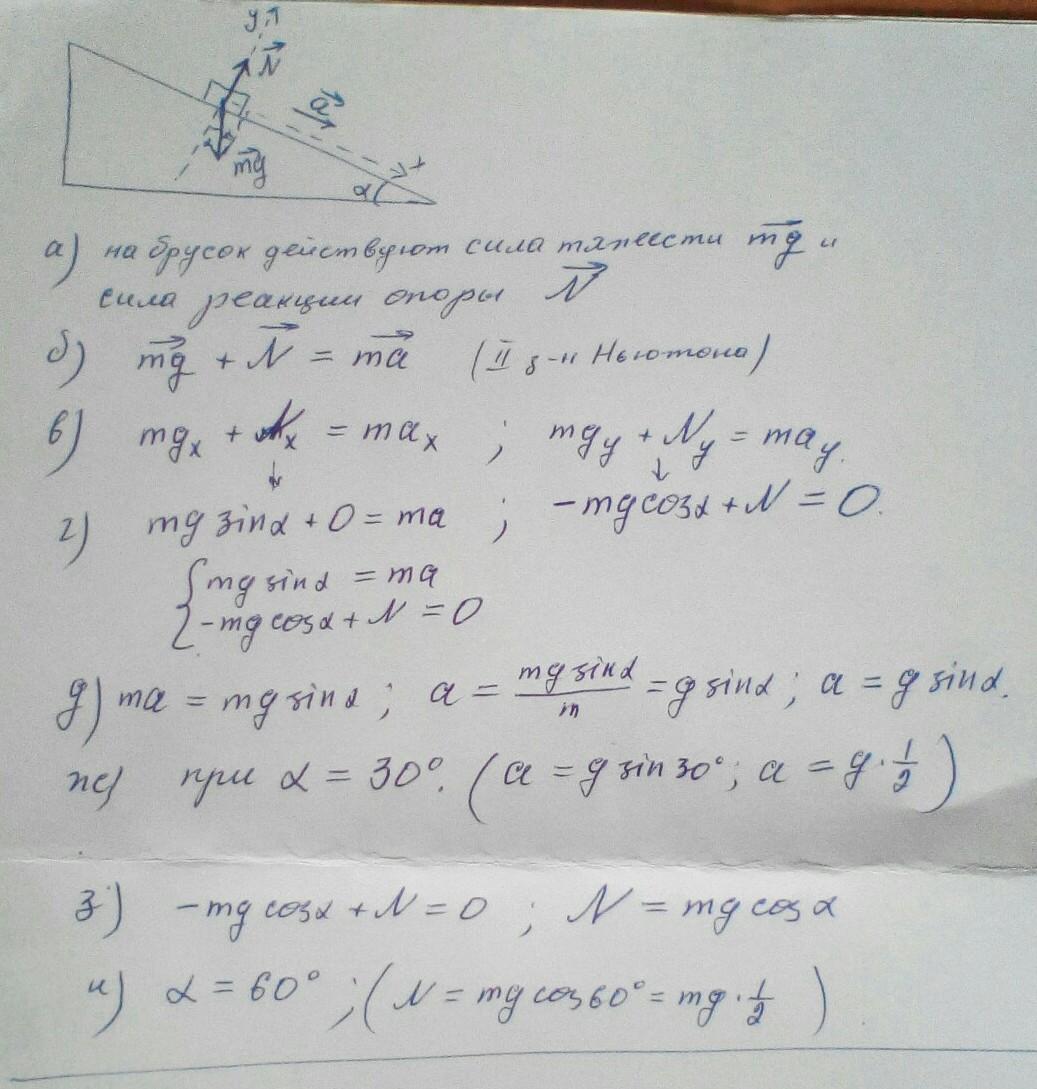 y↑
N⃗
a⃗
x
mg⃗
α
а) на брусок действуют сила тяжести mg⃗ и
сила реакции опоры N⃗
б) mg⃗ + N⃗ = ma⃗ (II з-н Ньютона)
в) mgₓ + Nₓ = maₓ ; mg_y + N_y = ma_y.
↓ ↓
г) mg sinα + 0 = ma ; -mg cosα + N = 0.
{ mg sinα = ma
-mg cosα + N = 0
д) ma = mg sinα ; a = mg sinα / m = g sinα ; a = g sinα.
ж) при α = 30°. (a = g sin 30° ; a = g · 1/2)
з) -mg cosα + N = 0 ; N = mg cosα
и) α = 60° ; (N = mg cos 60° = mg · 1/2)